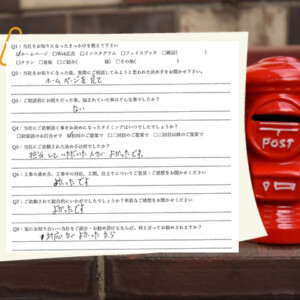 Q1：当社をお知りになったきっかけを教えて下さい
☑ホームページ □Web広告 □インスタグラム □フェイスブック □雑誌( )
□チラシ □看板 □ご紹介( 様) □その他( )
Q2：当社をお知りになった後、実際にご相談してみようと思われた決め手をお聞かせ下さい。
ホームページを見て
Q3：ご相談前にお困りだった事、悩まれていた事はどんな事でしたか？
ない
Q4：当社にご依頼頂く事をお決めになったタイミングはいつでしたでしょうか？
□初回面談のお打合せで ☑初回のご提案で □二回目のご提案で □三回目以降のご提案で
Q5：当社にご依頼された決め手は何でしたか？
担当していただいた人がよかったです。
Q6：工事の進め方、工事中の対応、工期、仕上りについてご意見・ご感想をお聞かせください
よかったです
Q7：ご依頼されて総合的にいかがでしたでしょうか？率直なご感想をお聞かせください
よかったです
Q8：仮にお知り合いへ当社をご紹介・お勧め頂けるならば、何と言ってお勧めされますか？
対応がよかったから
POST